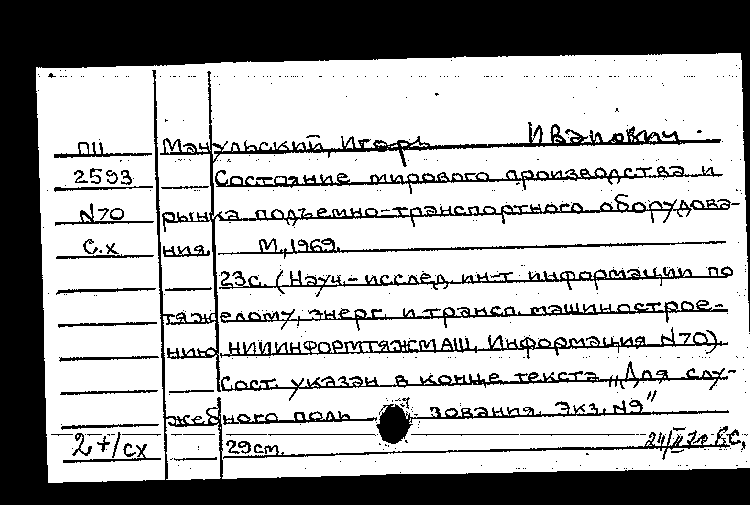 ПII Манульский, Игорь Иванович.
2593 Состояние мирового производства и
N70 рынка подъемно-транспортного оборудова-
С.х ния. М., 1969.
23с. (Науч.-исслед. ин-т информации по
тяжелому, энерг. и трансп. машинострое-
нию. НИИИНФОРМТЯЖМАШ, Информация N70).
Сост. указан в конце текста „Для слу-
жебного поль зования. Экз. N9"
2+/сх 29см. 24/II 70 ВС,